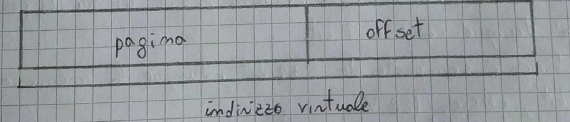 pagina
offset
indirizzo virtuale